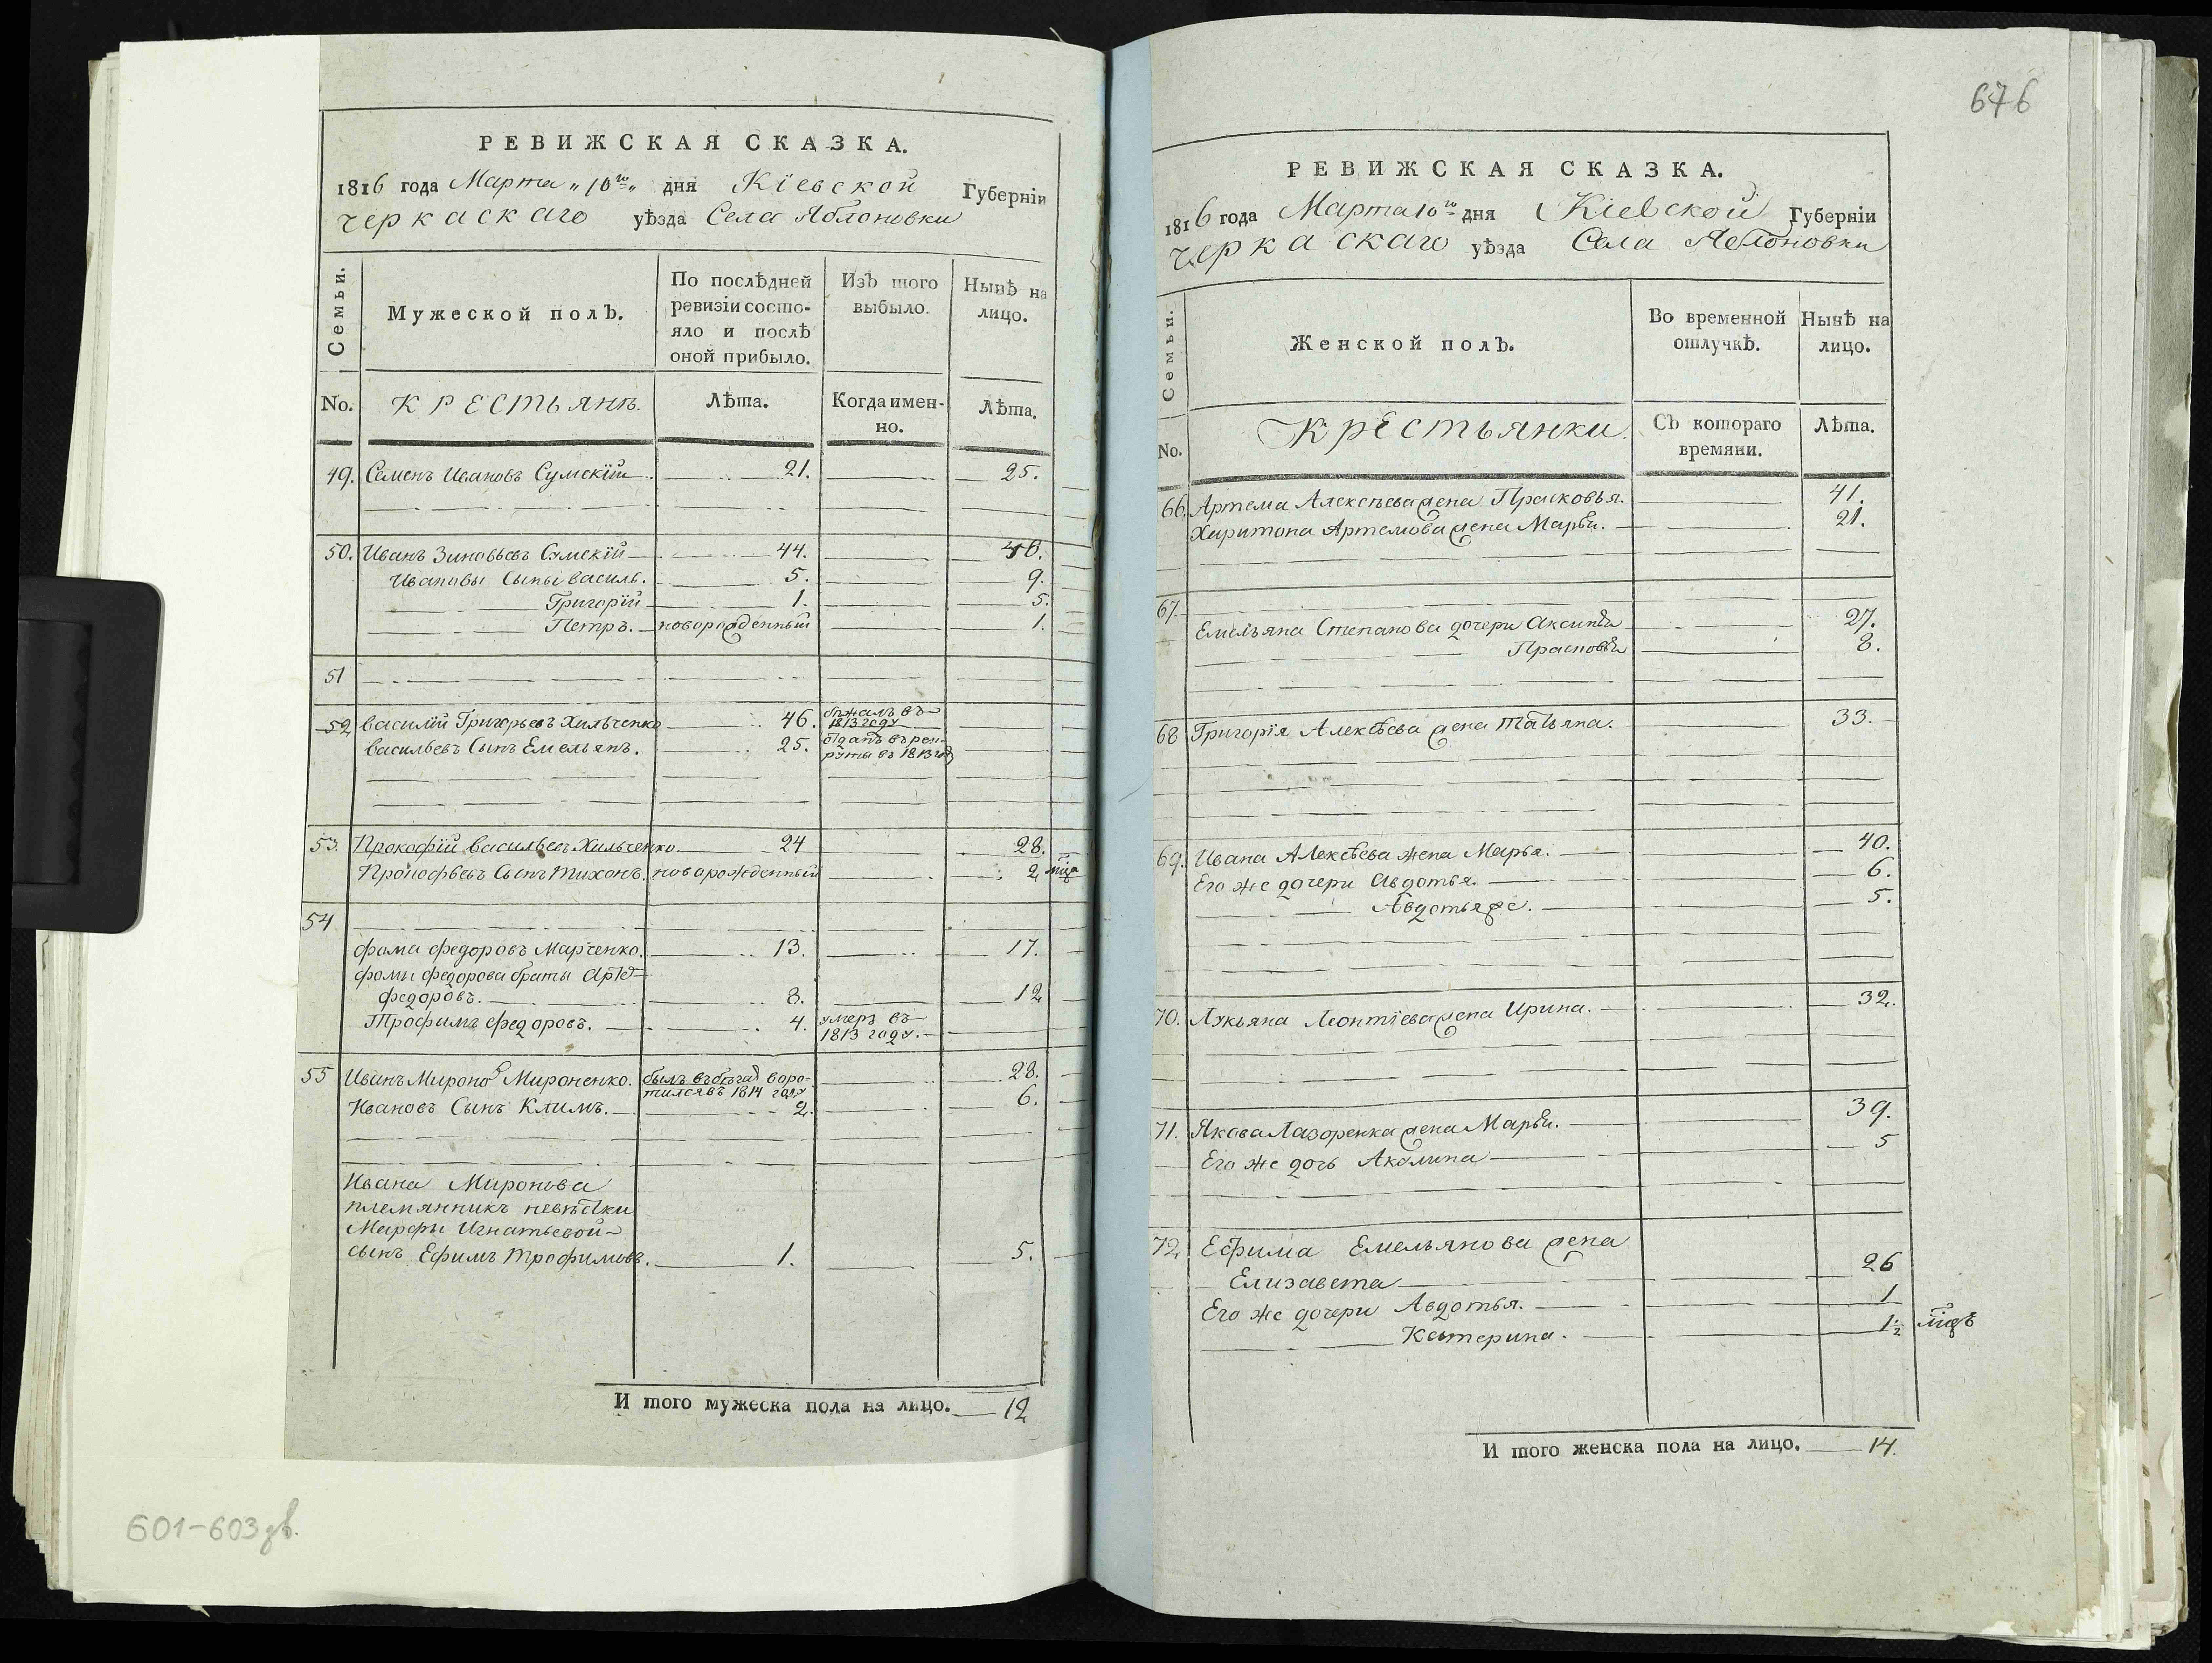 РЕВИЖСКАЯ СКАЗКА.
1816 года Марта „10го„ дня Кіевской Губерніи
черкаскаго уѣзда Села Яблоновки
Семьи.
Мужеской полъ.
По послѣдней ревизіи состояло и послѣ оной прибыло.
Изъ того выбыло.
Нынѣ на лицо.
No. Крестьянъ. Лѣта. Когда именно. Лѣта.
49. Семенъ Ивановъ Сумскій 21. 25.
50. Иванъ Зиновьевъ Сумскій 44. 48.
Ивановы Сыны василь. 5. 9.
Григорій 1. 5.
Петръ. новорожденный 1.
51
52 василій Григорьевъ Хильченко 46. бѣжалъ въ 1813 году
васильевъ Сынъ Емельянъ. 25. отданъ въ рекруты въ 1813 году
53. Прокофій васильевъ Хильченко. 24 28.
Прокофьевъ Сынъ Тихонъ. новорожденный 2 мца
54
фома федоровъ Марченко. 13. 17.
фомы федорова браты
федоровъ. 8. 12
Трофимъ федоровъ. 4. умеръ въ 1813 году.
55 Иванъ Мироновъ Мироненко. былъ въ бѣгах воротился въ 1814 году 28.
Ивановъ Сынъ Климъ. 2. 6.
Ивана Миронова
племянникъ невѣстки
Марфы Игнатьевой
сынъ Ефимъ Трофимовъ. 1. 5.
И того мужеска пола на лицо. 12
601-603 зв.
676
РЕВИЖСКАЯ СКАЗКА.
1816 года Марта 10го дня Кіевской Губерніи
черкаскаго уѣзда Села Яблоновки
Семьи.
Женской полъ.
Во временной отлучкѣ.
Нынѣ на лицо.
No. Крестьянки. Съ котораго времяни. Лѣта.
66. Артема Алексѣева жена Прасковья. 41.
Харитона Артемова жена Марья. 21.
67.
Емельяна Степанова дочери Аксинья 27.
Прасковья 8.
68 Григорія Алексѣева жена Татьяна. 33.
69. Ивана Алексѣева жена Марья. 40.
Его же дочери Авдотья. 6.
Авдотья же. 5.
70. Лукьяна Леонтіева жена Ирина. 32.
71. Якова Лазоренка жена Марья. 39.
Его же дочь Акилина 5
72 Ефима Емельянова жена
Елизавета 26
Его же дочери Авдотья. 1
Катерина. 1½
И того женска пола на лицо. 14.